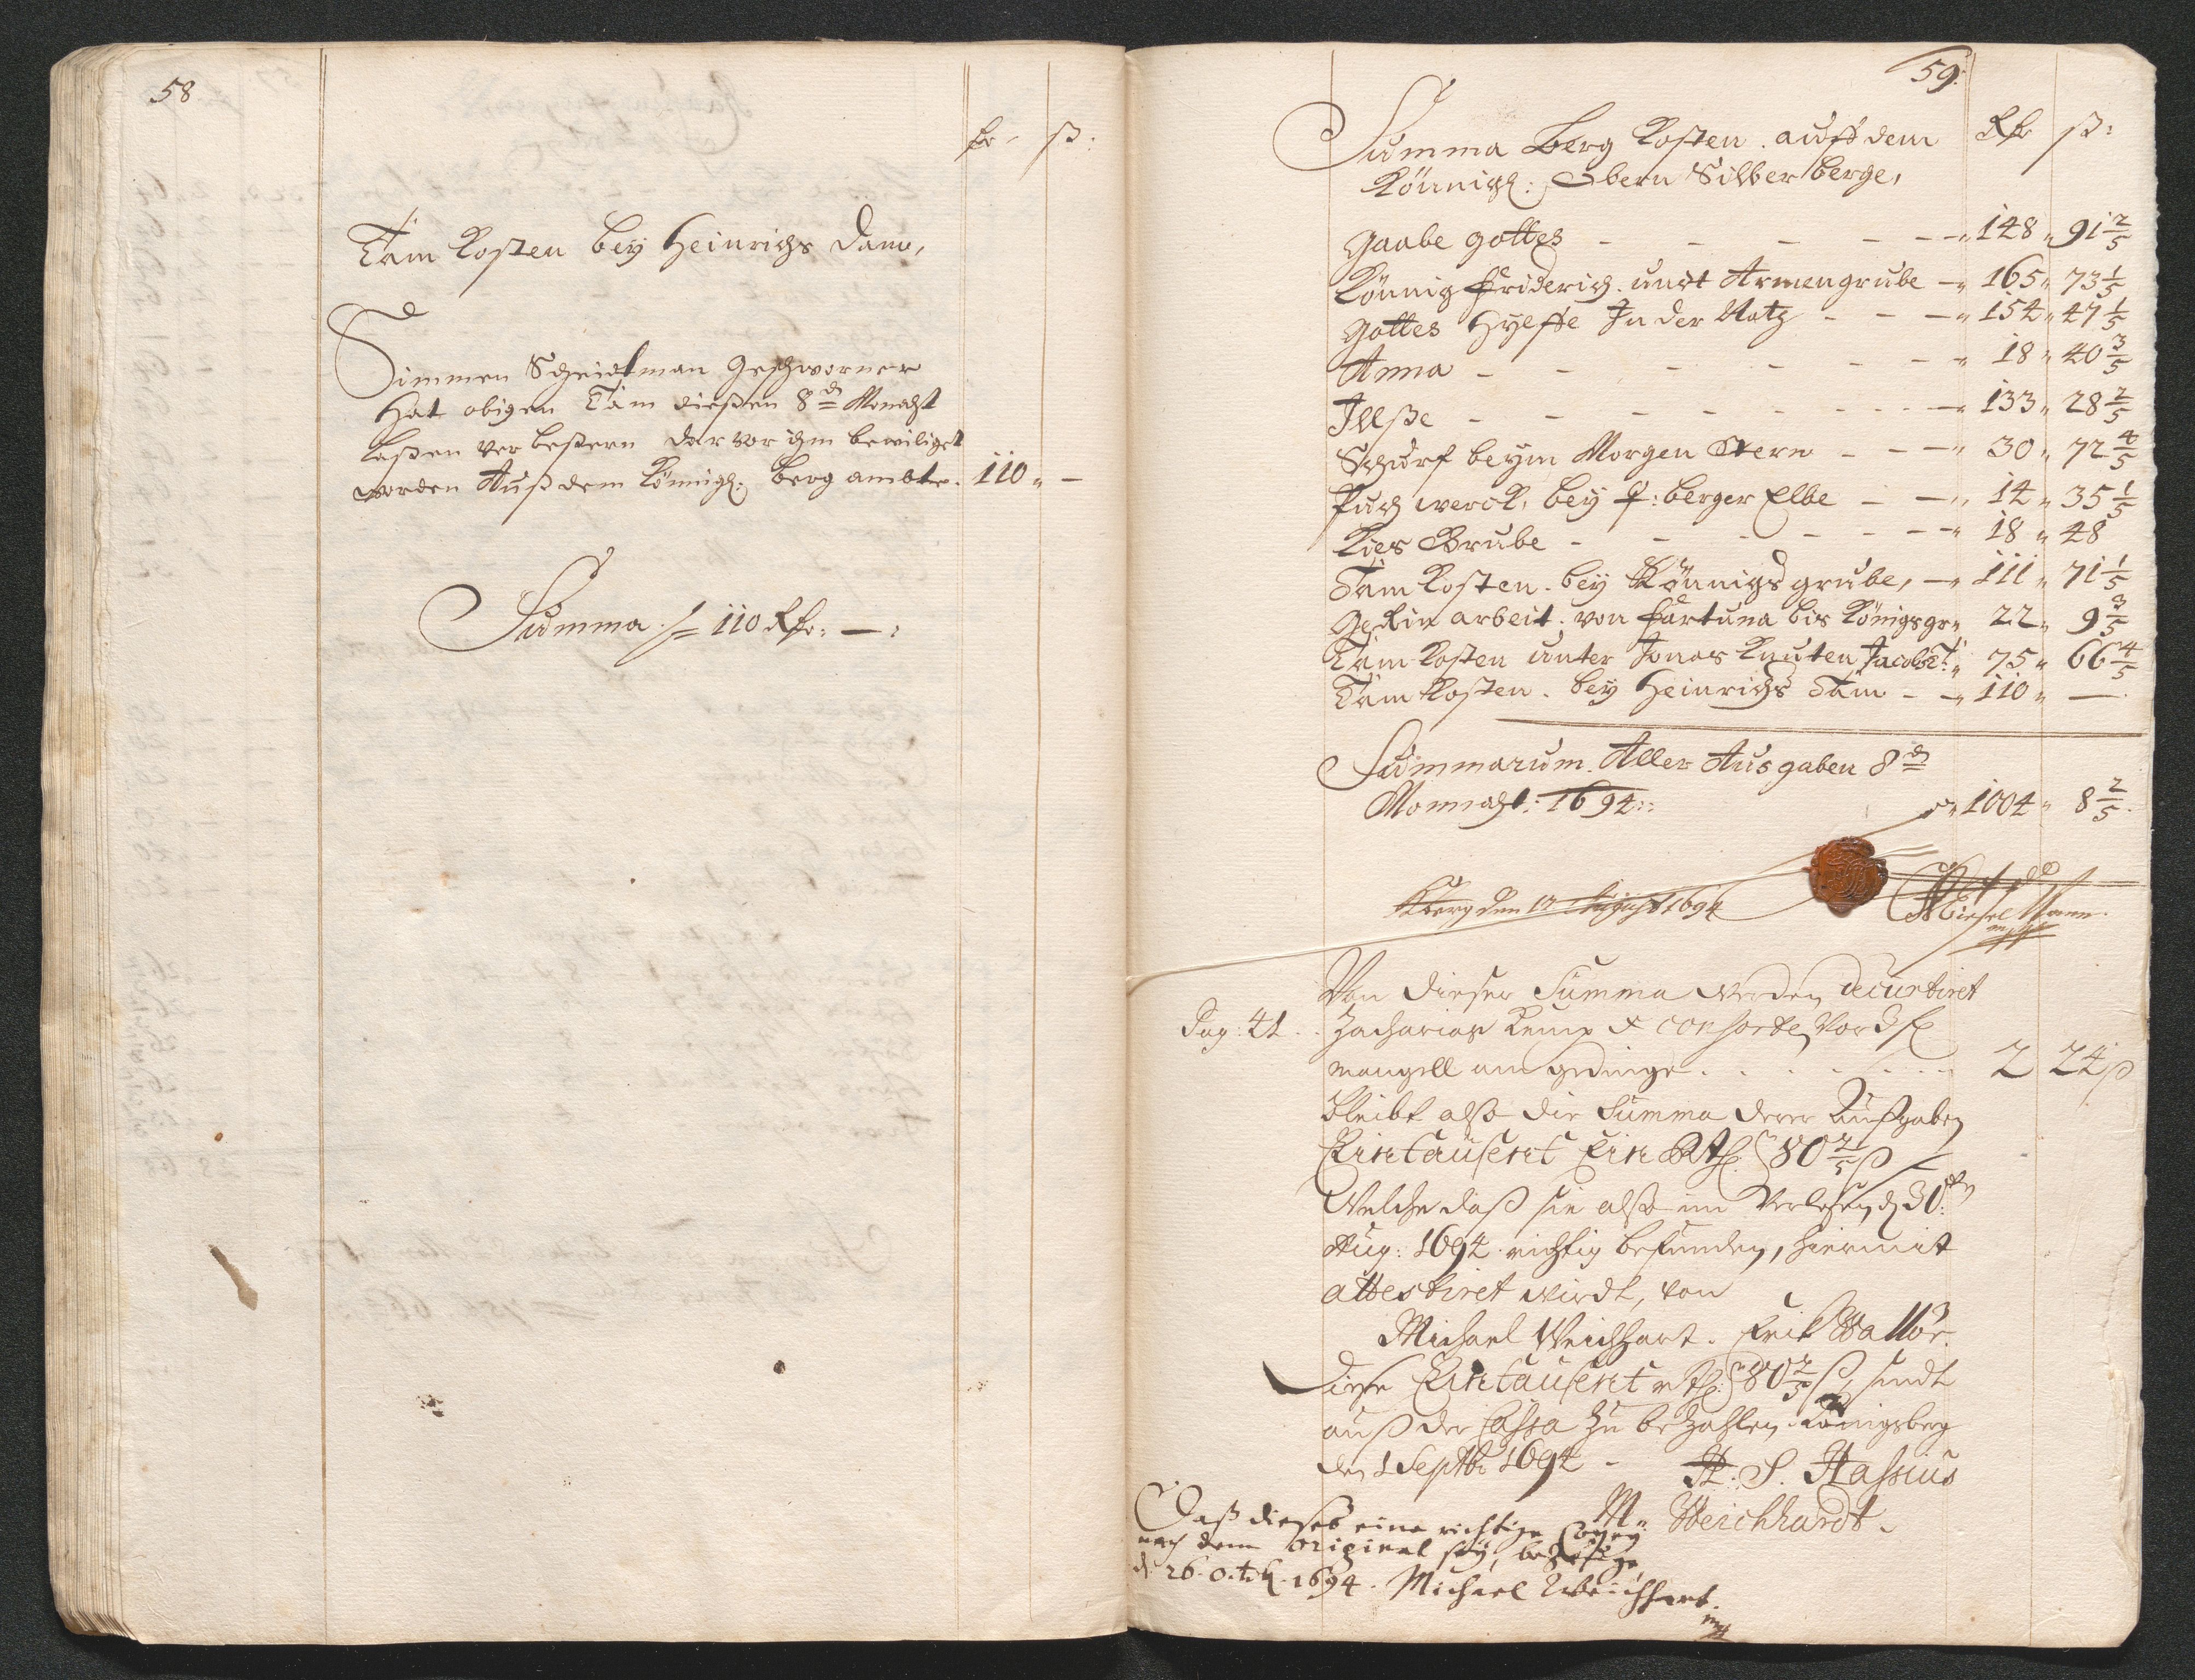 58
ß:
Täm Kosten bey Heinrichs Dam,
Simmen Schmidtman Geschworner
Hat obigen Täm diesen 8ⁿ Monacht
Laßen verbeßern darvor ihm bewiliget
worden Auß dem Königl: Berg ambte. 110 " —
Summa // 110 Rthr: — :
59:
Summa Berg Kosten auff dem Rthr ß:
Königl: Obern Silber berge,
Gaabe gottes - - - - - " 148 " 91 2/5
König Friderich undt Armengrube - " 165 " 73 1/5
Gottes Hylffe In der Notz - - - " 154 " 47 1/5
Anna - - - - - - " 18 " 40 3/5
Illße - - - - - - - 133 " 28 2/5
Schurf beym Morgen Stern - - - " 30 " 72 4/5
Puch werck, bey f: berger Elbe - - " 14 " 35 1/5
Kies Grube - - - - - - " 18 " 48
Däm Kosten bey Königs grube, - " 111 " 71 1/5
arbeit von Fartuna bis Königsgr " 22 " 9 3/5
Täm Kosten unter Jonas Knuten Jacobs T: " 75 " 66 4/5
Täm Kosten bey Heinrichs Däm - - " 110 " —
Summarum Aller Ausgaben 8ⁿ
Monacht: 1694:: " 1004 " 8 2/5
Kberg den 17 Augusti 1694
Von dieser Summa werden decurtiret
Pag: 41. Zacharias Kemp & consorten vor 3
mangell am gedinge . . . . . . 2 24 ß
Bleibt also die Summa derer Außgaben
Eintausent Ein Rth 80 2/5 ß
Welche daß sie also im Verlesen d 30ten
Aug: 1694 richtig befunden, hiermit
attestiret wirdt, von
Michael Weichhart. Erik Wallör
Diese Eintausent 1 rth: 80 2/5 ß, sindt
auß der Cassa zu bezahlen Königsberg
den 1 Septbr 1694 - H: S. Hassius
M: Weichhardt.
Daß dieses eine richtige Copey
nach dem Original sey, bezeuge,
d. 26. Octob. 1694. Michael Weichhart.
mp